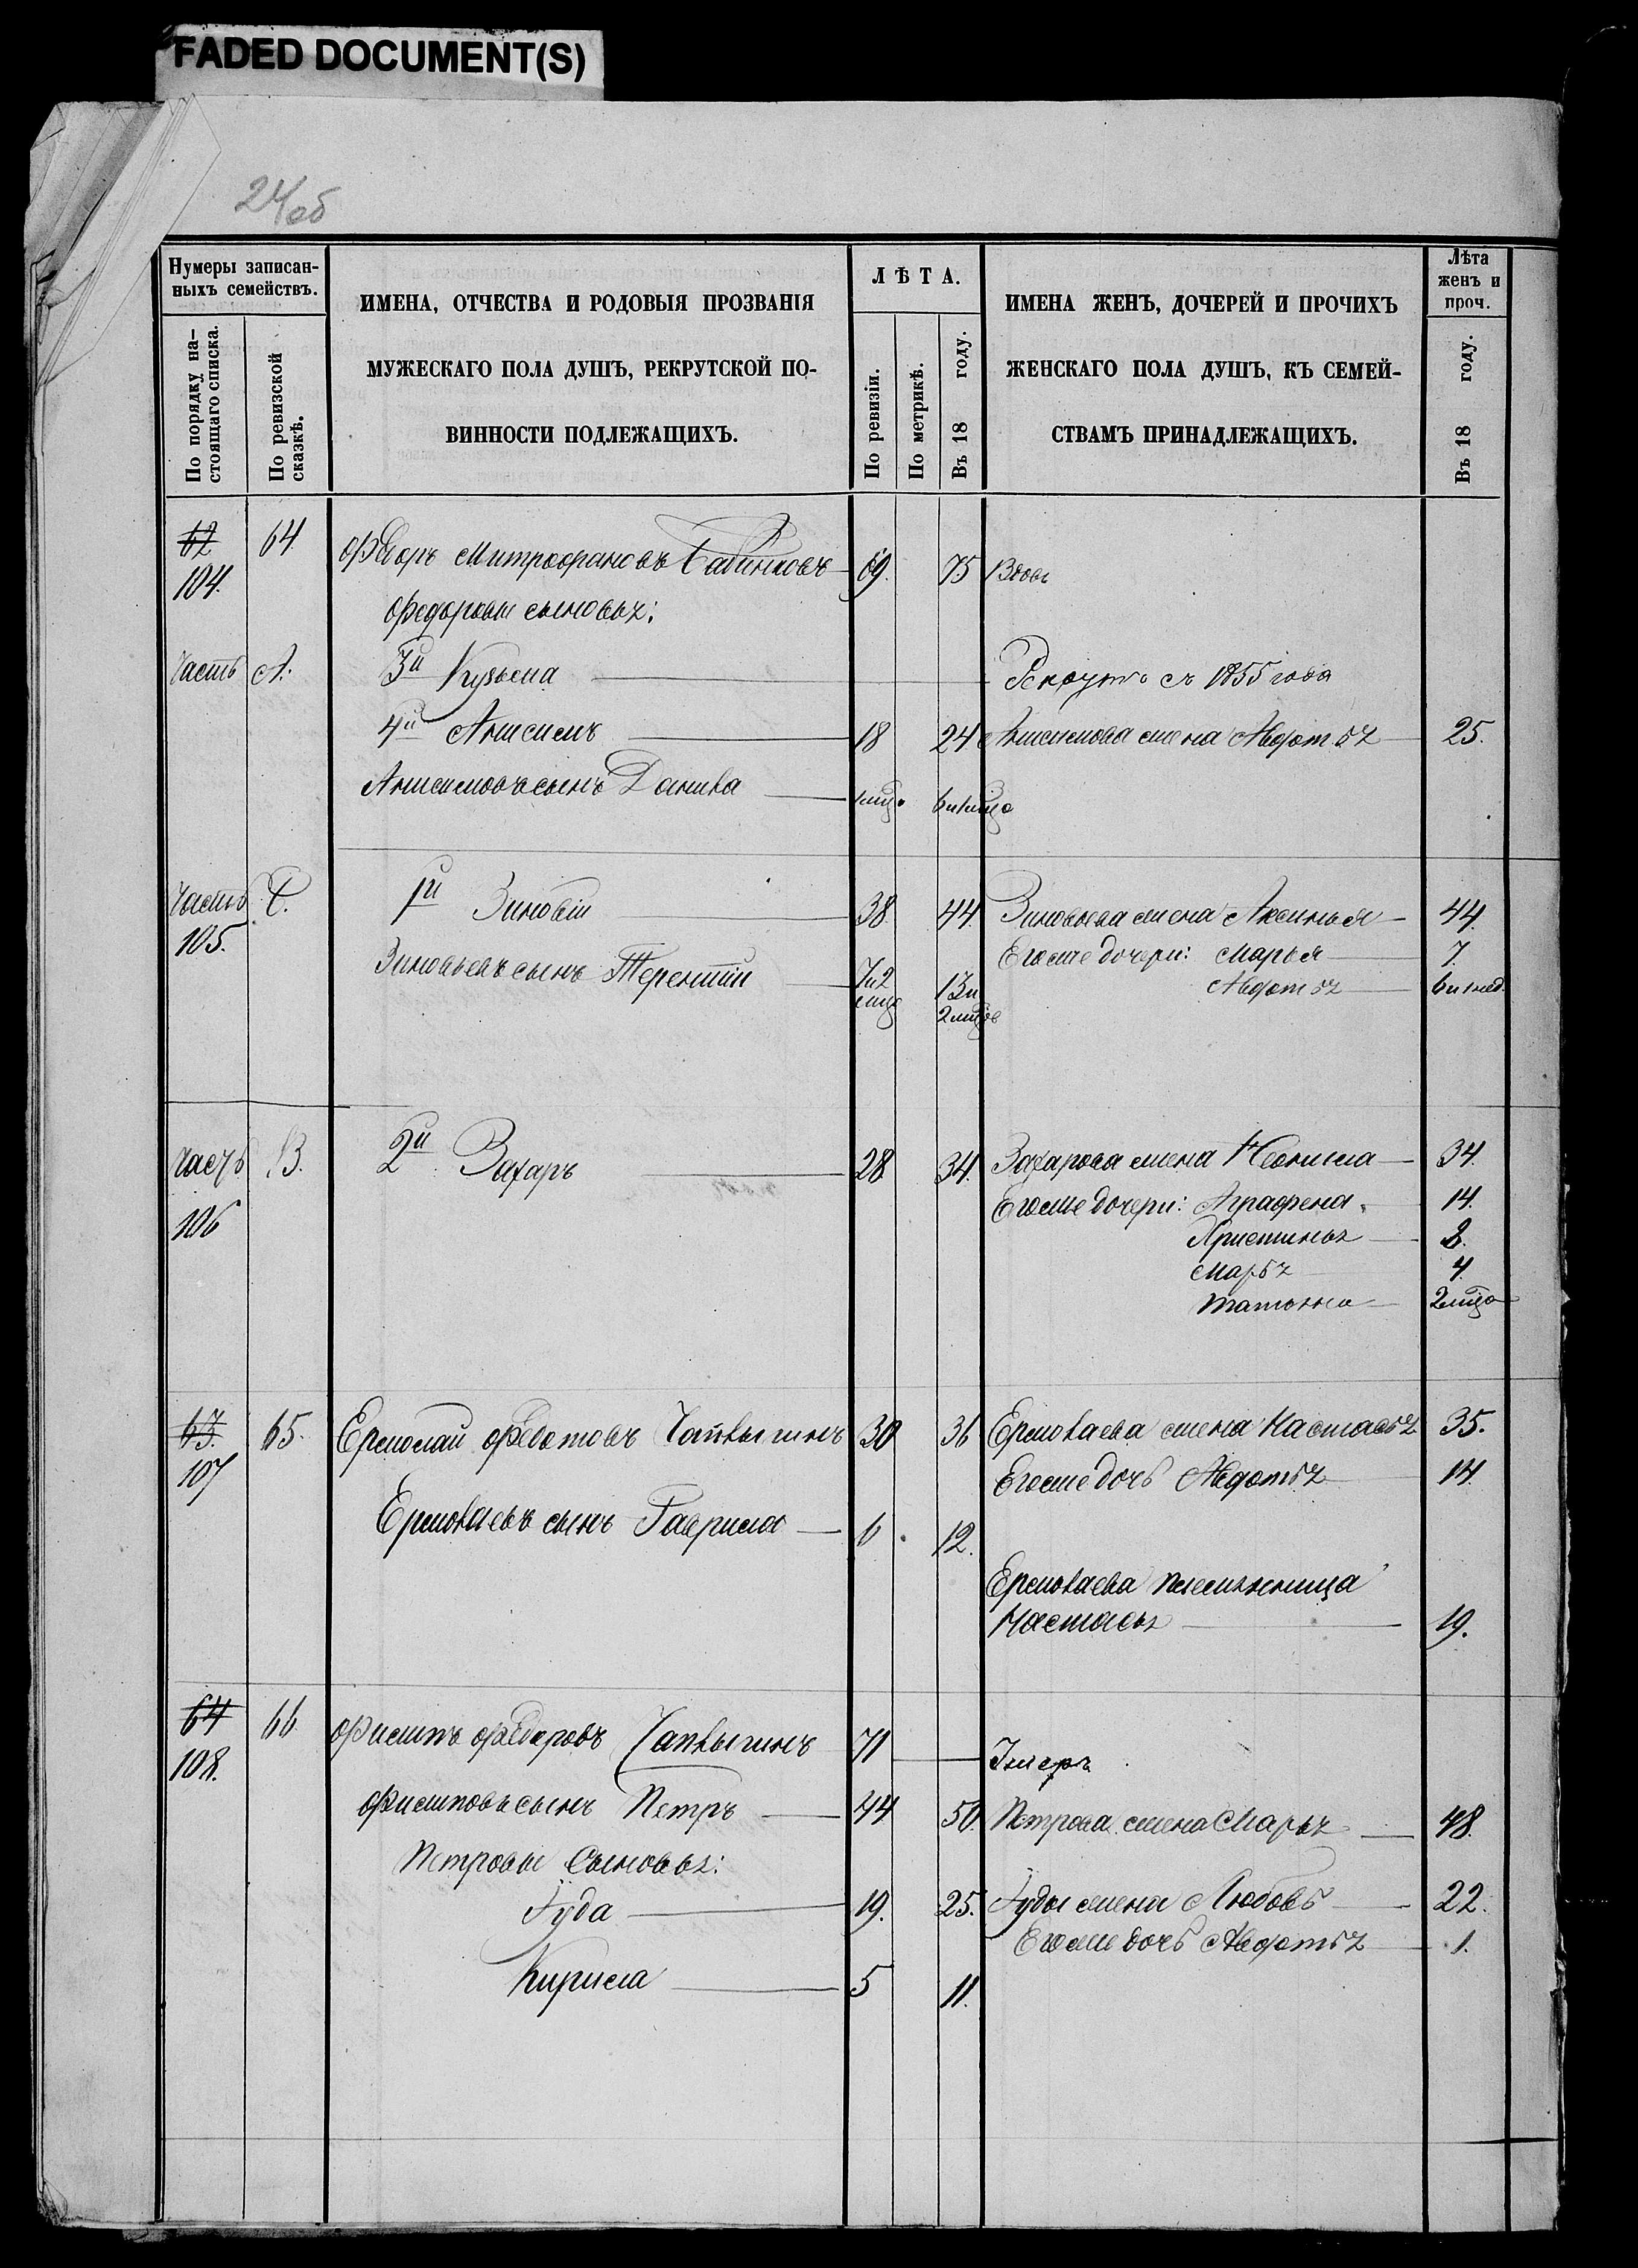 FADED DOCUMENT(S)
24/об
Нумеры записан-
ныхъ семействъ.
По порядку на-
стоящаго списка.
По ревизской
сказкѣ.
ИМЕНА, ОТЧЕСТВА И РОДОВЫЯ ПРОЗВАНІЯ
МУЖЕСКАГО ПОЛА ДУШЪ, РЕКРУТСКОЙ ПО-
ВИННОСТИ ПОДЛЕЖАЩИХЪ.
ЛѢТА.
По ревизіи.
По метрикѣ.
Въ 18 году.
ИМЕНА ЖЕНЪ, ДОЧЕРЕЙ И ПРОЧИХЪ
ЖЕНСКАГО ПОЛА ДУШЪ, КЪ СЕМЕЙ-
СТВАМЪ ПРИНАДЛЕЖАЩИХЪ.
Лѣта
женъ и
проч.
Въ 18 году.
62 64 Федоръ Митрофановъ 69. 75 Вдовъ
104.
Федоровы сыновья:
Часть А. 3й Кузьма Рекрутъ съ 1855 года
4й Анисимъ 18 24 Анисимова жена Авдотья 25.
Анисимовъ сынъ Данила 1 мца 6 и 1 мца
Часть С. 1й Зиновій 38. 44. Зиновьева жена Аксинья 44.
105. Егоже дочери: Марья 7.
Зиновьевъ сынъ Терентій 7 и 2 мца 13 и 2 мцов Авдотья 6 и 1 нед.
Часть В. 2й Захаръ 28 34. Захарова жена Неонила 34.
106 Егоже дочери: Аграфена 14.
Христинья 8.
Марья 4.
Татьяна 2 мца
63. 65. Ермолай Федотовъ Чаплыгинъ 30 36 Ермолаева жена Настасья 35.
107 Егоже дочь Авдотья 14
Ермолаевъ сынъ Гаврила 6 12.
Ермолаева племянница
Настасья 19.
64 66 Филипъ Федоровъ Чаплыгинъ 71 Умеръ
108.
Филиповъ сынъ Петръ 44 50. Петрова жена Марья 48.
Петровы Сыновья:
Іуда 19. 25. Іуды жена Любовь 22.
Егоже дочь Авдотья 1.
Кирила 5 11.